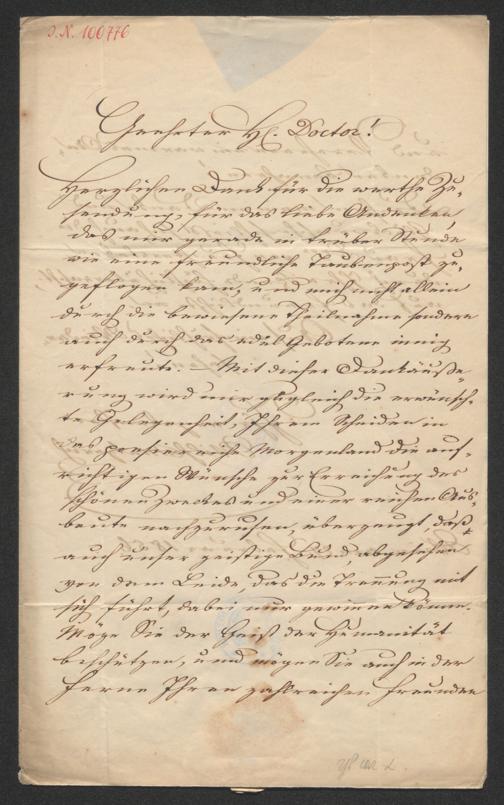 J. N. 100776
Geehrter H. Doctor!
Herzlichen Dank für die werthe Zu-
sendung, für das liebe Andenken,
das mir gerade in trüber Stunde
wie eine freundliche Taubenpost zu-
geflogen kam, und mich nicht allein
durch die bewiesene Theilnahme sondern
auch durch das edel Gebotene innig
erfreute. – Mit dieser Dankäuße-
rung wird mir zugleich die erwünsch-
te Gelegenheit, Ihrem Scheiden in
das poesiereiche Morgenland die auf-
richtigen Wünsche zur Erreichung des
schönen Zweckes und einer reichen Aus-
beute nachzurufen, überzeugt, daß
auch unser geistige Bund, abgesehen
von dem Leide, das die Trennung mit
sich führt, dabei nur gewinnen könne.
Möge Sie der Geist der Humanität
beschützen, und mögen Sie auch in der
Ferne Ihren zahlreichen Freunden